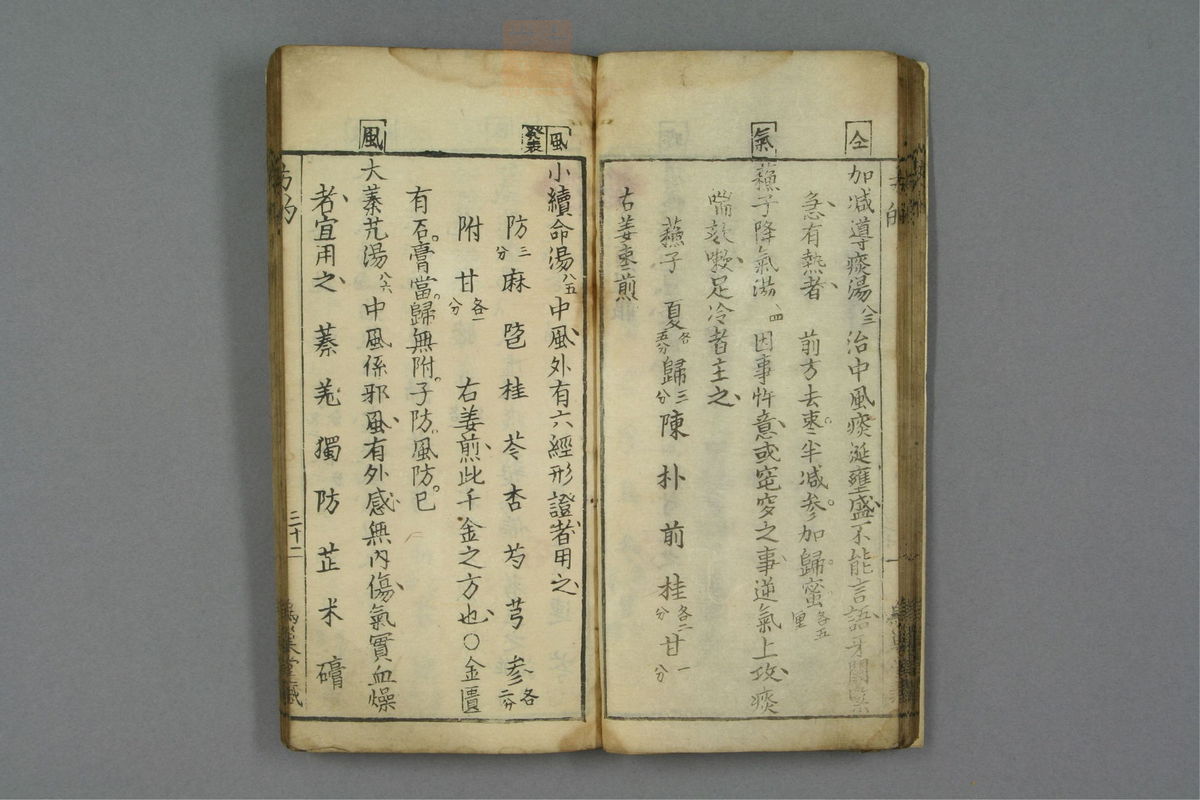 仝
加減導痰湯 八三 治中風痰涎壅盛不能言語牙關緊
急有熱者 前方去枣半減参加歸蜜 各五厘
氣
蘓子降氣湯 四 因事忤意或窀穸之事逆氣上攻痰
喘欬嗽足冷者主之
蘓子 夏 各五分 歸 三分 陳 朴 前 桂 各二分 甘 一分
右姜枣煎
風
發表
小續命湯 八五 中風外有六經形證者用之
防 三分 麻 芭 桂 芩 杏 芍 芎 参 各二分
附 甘 各一分 右姜煎此千金之方也○金匱
有石膏當歸無附子防風防已
風
大蓁艽湯 八六 中風係邪風有外感無内傷氣實血燥
者宜用之 蓁 羌 獨 防 芷 朮 膏
三十二